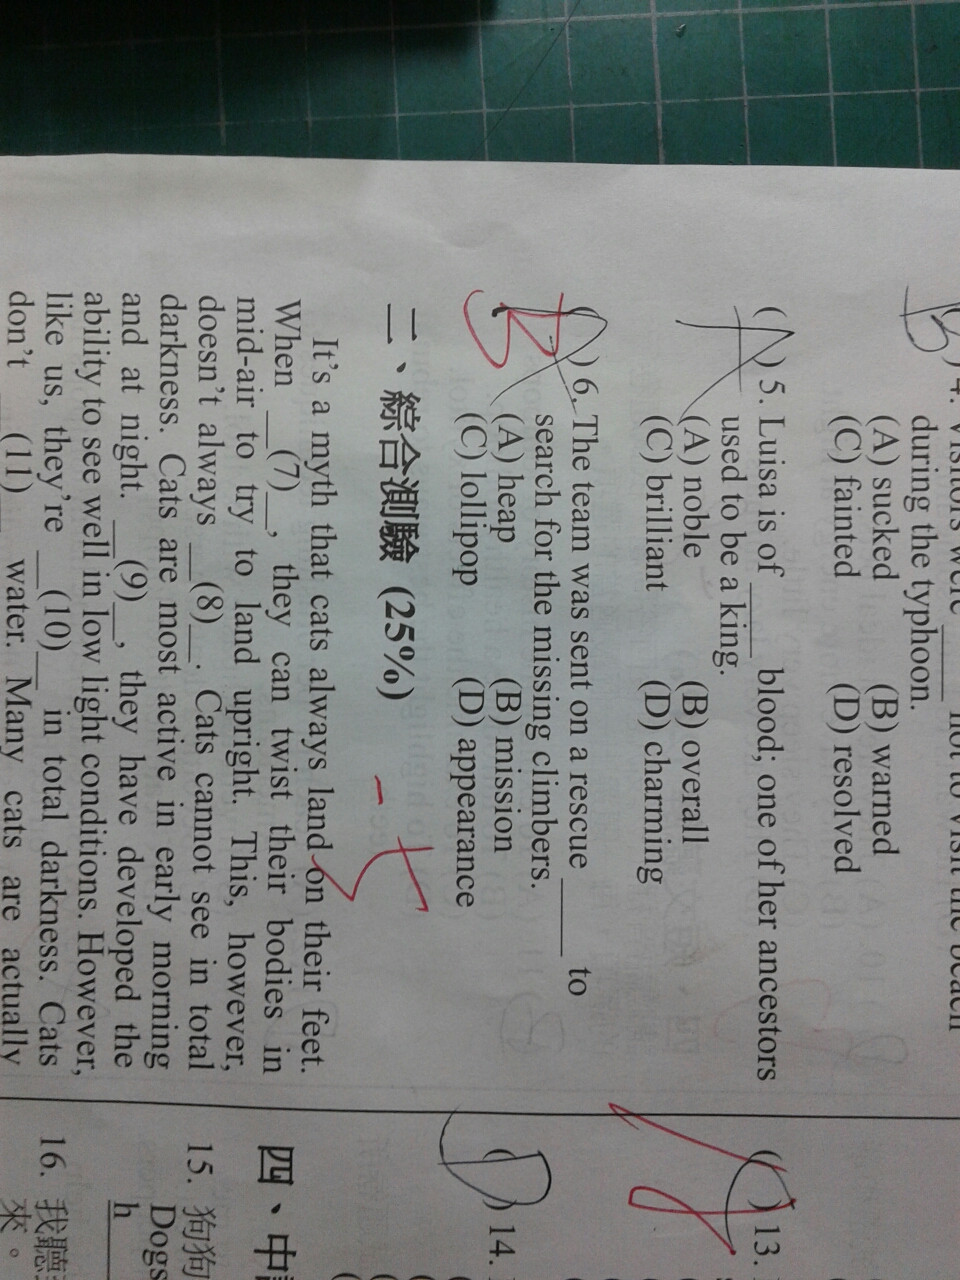 B
) 4. Visitors were ______ not to visit the beach
during the typhoon.
(A) sucked (B) warned
(C) fainted (D) resolved
(A) 5. Luisa is of ______ blood; one of her ancestors
used to be a king.
(A) noble (B) overall
(C) brilliant (D) charming
( ) 6. The team was sent on a rescue ______ to
search for the missing climbers.
B
(A) heap (B) mission
(C) lollipop (D) appearance
二、綜合測驗 (25%)
It's a myth that cats always land on their feet.
When __(7)__, they can twist their bodies in
mid-air to try to land upright. This, however,
doesn't always __(8)__. Cats cannot see in total
darkness. Cats are most active in early morning
and at night. __(9)__, they have developed the
ability to see well in low light conditions. However,
like us, they're __(10)__ in total darkness. Cats
don't __(11)__ water. Many cats are actually
( ) 13.
(D) 14.
四、中
15. 狗狗
Dogs
h
16. 我聽
來。